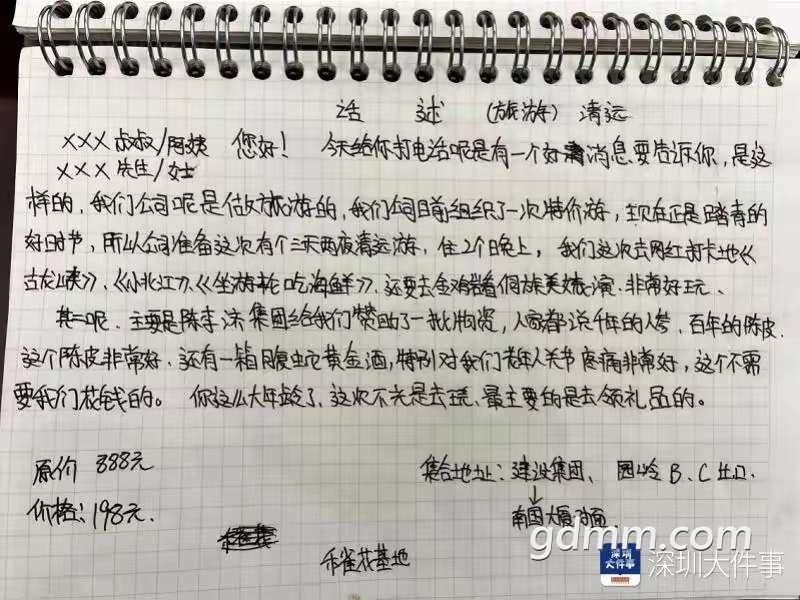 话 述 (旅游) 清远
××× 叔叔/阿姨 您好! 今天给你打电话呢是有一个好消息要告诉你,是这
××× 先生/女士
样的,我们公司呢是做旅游的,我们公司目前组织了一次特价游,现在正是踏青的
好时节,所以公司准备这次有个三天两夜清远游,住2个晚上,我们这次去网红打卡地《
古龙峡》、《小北江》、《坐游轮吃海鲜》、还要去金鸡岩看侗族美女表演、非常好玩.
其二呢、主要是陈李济集团给我们赞助了一批物资,人家都说千年的人参、百年的陈皮
这个陈皮非常好、还有一箱腹蛇黄金酒,特别对我们老年人关节疼痛非常好,这个不需
要我们花钱的。 你这么大年龄了、这次不光是去玩、最主要的是去领礼品的。
原价 888元
集合地址:建设集团、园岭 B、C出口.
价格:198元.
南国大厦对面
禾雀花基地
gdmm.com
深圳大件事
深圳大件事